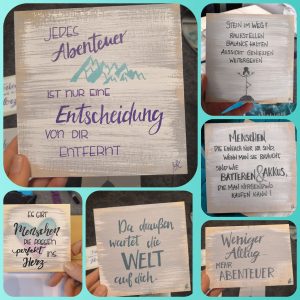 JEDES
Abenteuer
IST NUR EINE
Entscheidung
VON DIR
ENTFERNT
STEIN IM WEG?
RAUFSTELLEN
BALANCE HALTEN
AUSSICHT GENIESSEN
WEITERGEHEN
MENSCHEN
DIE EINFACH NUR DA SIND,
WENN MAN SIE BRAUCHT,
SIND WIE
BATTERIEN & AKKUS,
DIE MAN NIRGENDWO
KAUFEN KANN!
ES GIBT
Menschen
DIE PASSEN
perfekt INS
Herz
Da draußen
wartet die
WELT
auf dich
Weniger
Alltag
MEHR
ABENTEUER